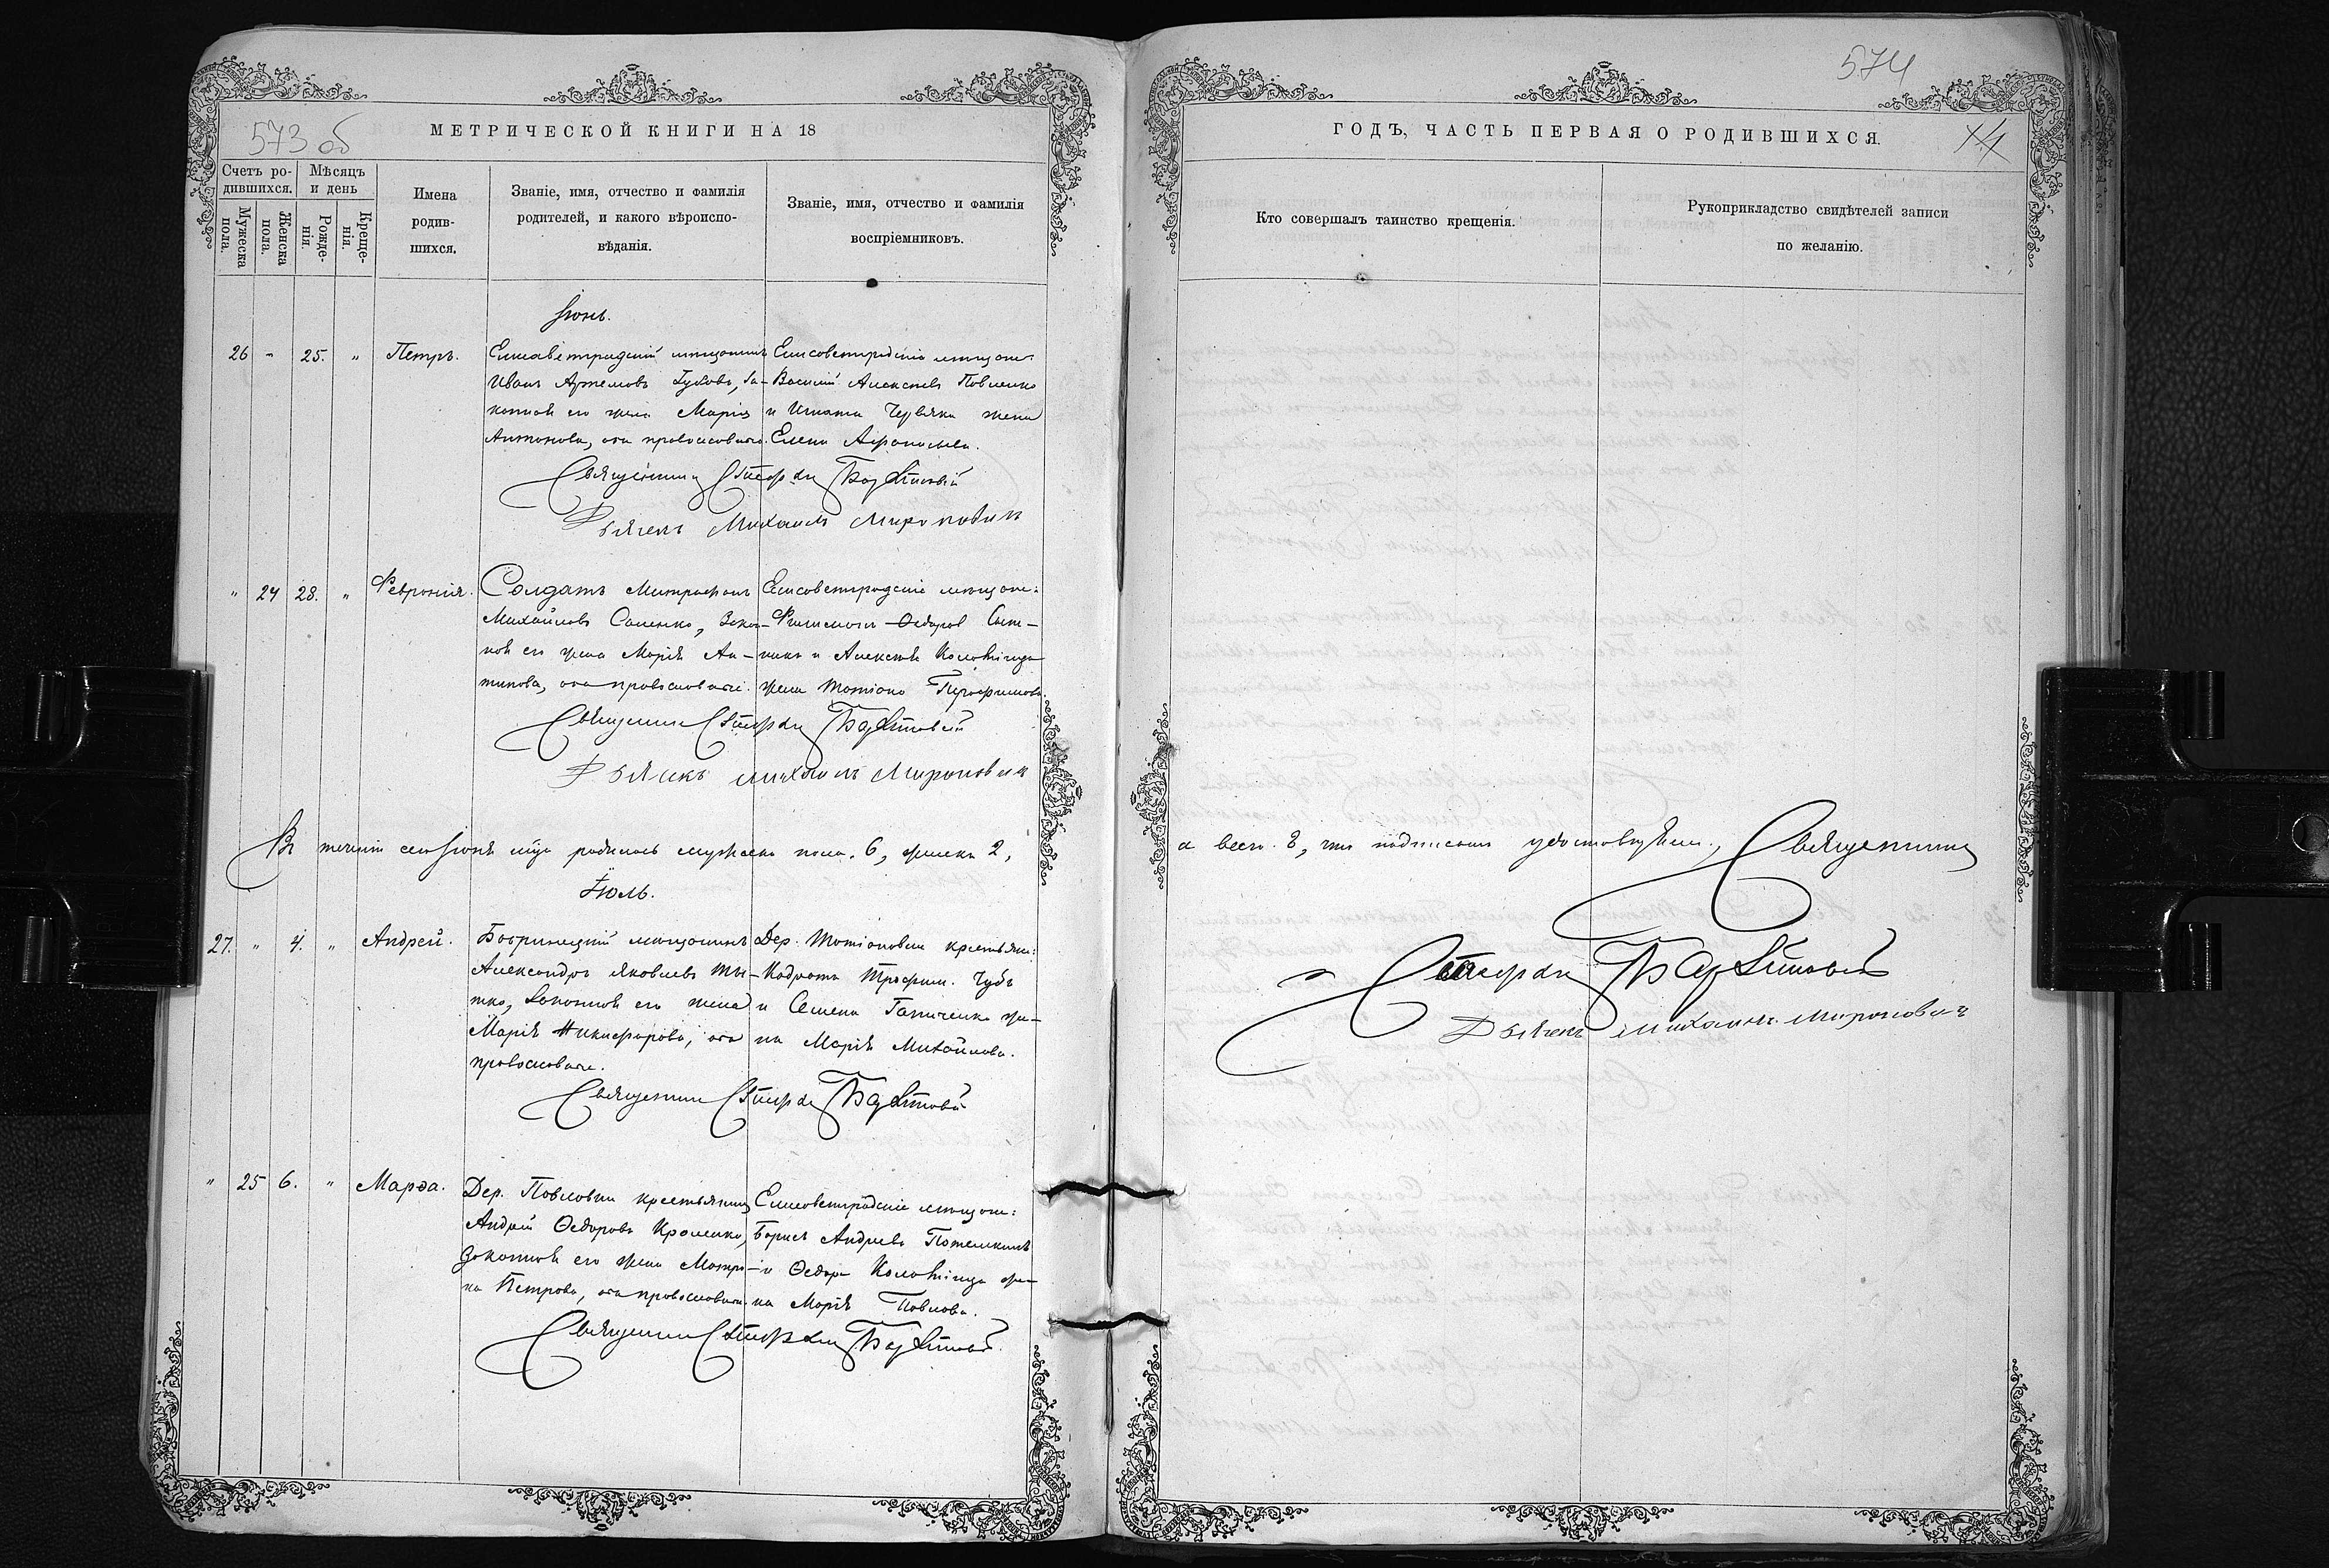 573 об
МЕТРИЧЕСКОЙ КНИГИ НА 18
Счетъ ро-
дившихся.
Мѣсяцъ
и день
Мужеска
пола.
Женска
пола.
Рожде-
нія.
Креще-
нія.
Имена
родив-
шихся.
Званіе, имя, отчество и фамилія
родителей, и какого вѣроиспо-
вѣданія.
Званіе, имя, отчество и фамилія
воспріемниковъ.
Іюнь.
26 " 25. " Петръ.
Елисаветградскій мѣщанинъ
Иванъ Артемовъ Губовъ, за-
конной его жена Марія
Антонова, оба православные.
Елисаветградскіе мѣщане:
Василій Алексѣевъ Павленко
и Игната Червяка жена
Елена Афанасьева.
Священникъ Стефанъ
Дьячекъ Михаилъ Мироновичъ
" 24 28. " Февронія.
Солдатъ Митрофанъ
Михайловъ Саленко, Закон-
ной его жена Марія Ан-
типова, оба православные.
Елисаветградскіе мѣщане:
Филимонъ Ѳедоровъ Сыт-
никъ и Алексѣя
жена Татіана
Священникъ Стефанъ
Дьячекъ Михаилъ Мироновичъ
Въ теченіи сего Іюня м-ца родилось мужеска пола. 6, женска 2,
Іюль.
27. " 4. " Андрей.
Бобринецкій мѣщанинъ
Александръ Яковлевъ Ты-
тко, Законной его жена
Марія Никифорова, оба
православные.
Дер. Татіановки крестьяне:
Кадратъ Трофим. Чубъ
и Семена Ганиченка же-
на Марія Михайлова.
Священникъ Стефанъ
" 25 6. " Марѳа.
Дер. Павловки крестьянинъ
Андрей Ѳедоровъ Кроленко,
Законной его жена Матро-
на Петрова, оба православные.
Елисаветградскіе мѣщане:
Борисъ Андреевъ Потемкинъ
и Ѳедора же-
на Марія Павлова.
Священникъ Стефанъ
574
14
ГОДЪ, ЧАСТЬ ПЕРВАЯ О РОДИВШИХСЯ.
Кто совершалъ таинство крещенія.
Рукоприкладство свидѣтелей записи
по желанію.
а всего. 8, что подписомъ удостовѣряемъ., Священникъ
Стефанъ
Дьячекъ Михаилъ Мироновичъ